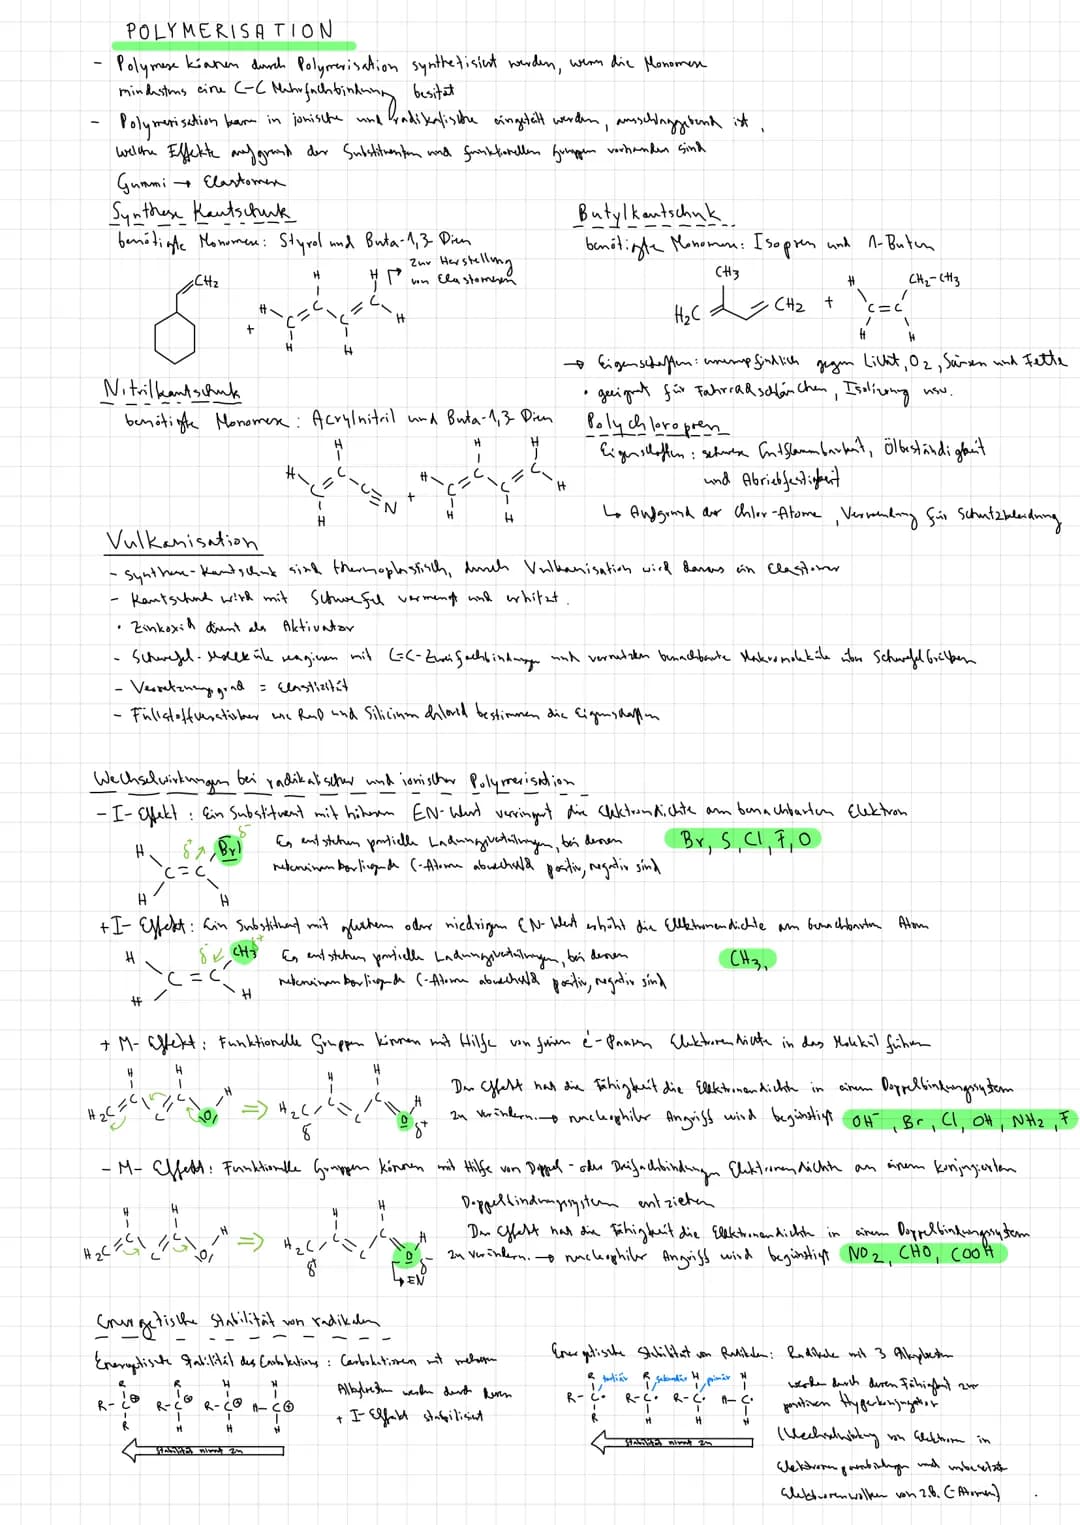 POLYMERISATION
- Polymere können durch Polymerisation synthetisiert werden, wenn die Monomere
mindestens eine C-C Mehrfachbindung besitzt
- Polymerisation kann in ionische und radikalische eingeteilt werden, ausschlaggebend ist,
welche Effekte aufgrund der Substituenten und funktionellen Gruppen vorhanden sind
Gummi → Elastomer
Synthese Kautschuk
benötigte Monomere: Styrol und Buta-1,3-Dien
zur Herstellung
von Elastomeren
CH2
+
H H H H H H
C C C C
Butylkautschuk
benötigte Monomere: Isopren und 1-Buten
CH3
H2C CH2 + H CH2-CH3
C=C
H H
→ Eigenschaften: unempfindlich gegen Licht, O2, Säuren und Fette
• geeignet für Fahrradschläuchen, Isolierung usw.
Nitrilkautschuk
benötigte Monomere: Acrylnitril und Buta-1,3-Dien
H H H C C C≡N + H H H H H H C C C C
Polychloropren
Eigenschaften: schwere Entflammbarkeit, Ölbeständigkeit
und Abriebfestigkeit
↳ Aufgrund der Chlor-Atome, Verwendung für Schutzkleidung
Vulkanisation
- Synthese-Kautschuk sind thermoplastisch, durch Vulkanisation wird daraus ein Elastomer
- Kautschuk wird mit Schwefel vermengt und erhitzt.
• Zinkoxid dient als Aktivator
- Schwefel-Moleküle reagieren mit C=C-Zweifachbindungen und vernetzen benachbarte Makromoleküle über Schwefelbrücken
- Vernetzungsgrad = Elastizität
- Füllstoffverstärker wie Ruß und Silicium chlorid bestimmen die Eigenschaften
Wechselwirkungen bei radikalischer und ionischer Polymerisation
- I-Effekt: Ein Substituent mit höherem EN-Wert verringert die Elektrondichte am benachbarten Elektron
H δ+ Br δ-
C=C
H H
Es entstehen partielle Ladungsverteilungen, bei denen
nebeneinanderliegende C-Atome abwechselnd positiv, negativ sind
Br, S, Cl, F, O
+I-Effekt: Ein Substituent mit gleichem oder niedrigem EN-Wert erhöht die Elektronendichte am benachbarten Atom
H δ- CH3 δ+
C=C
H H
Es entstehen partielle Ladungsverteilungen, bei denen
nebeneinanderliegende C-Atome abwechselnd positiv, negativ sind
CH3,
+ M-Effekt: Funktionelle Gruppen können mit Hilfe von freien e⁻-Paaren Elektronendichte in das Molekül führen
H H H
H2C C C C O ⇒ H2C C C C O
δ- δ+
Der Effekt hat die Fähigkeit die Elektronendichte in einem Doppelbindungssystem
zu verändern. → nucleophiler Angriff wird begünstigt OH⁻, Br, Cl, OH, NH2, F
- M-Effekt: Funktionelle Gruppen können mit Hilfe von Doppel- oder Dreifachbindungen Elektronendichte an einem konjugierten
Doppelbindungssystem entziehen
H H H
H2C C C C O ⇒ H2C C C C O
δ+ δ-
↳ EN
Der Effekt hat die Fähigkeit die Elektronendichte in einem Doppelbindungssystem
zu verändern. → nucleophiler Angriff wird begünstigt NO2, CHO, COOH
Energetische Stabilität von radikalen
Energetische Stabilität des Carbokations: Carbokationen mit mehreren
Alkylresten werden durch deren
+ I-Effekt stabilisiert
R R H H
R-C⊕ R-C⊕ R-C⊕ H-C⊕
R H H H
Stabilität nimmt zu
Energetische Stabilität von Radikalen: Radikale mit 3 Alkylresten
werden durch deren Fähigkeit zur
positiven Hyperkonjugation
(Wechselwirkung von Elektronen in
Elektronenpaarbindungen und unbesetzte
Elektronenwolken von z.B. C-Atomen)
tertiär sekundär primär
R R H H
R-C• R-C• R-C• H-C•
R H H H
Stabilität nimmt zu